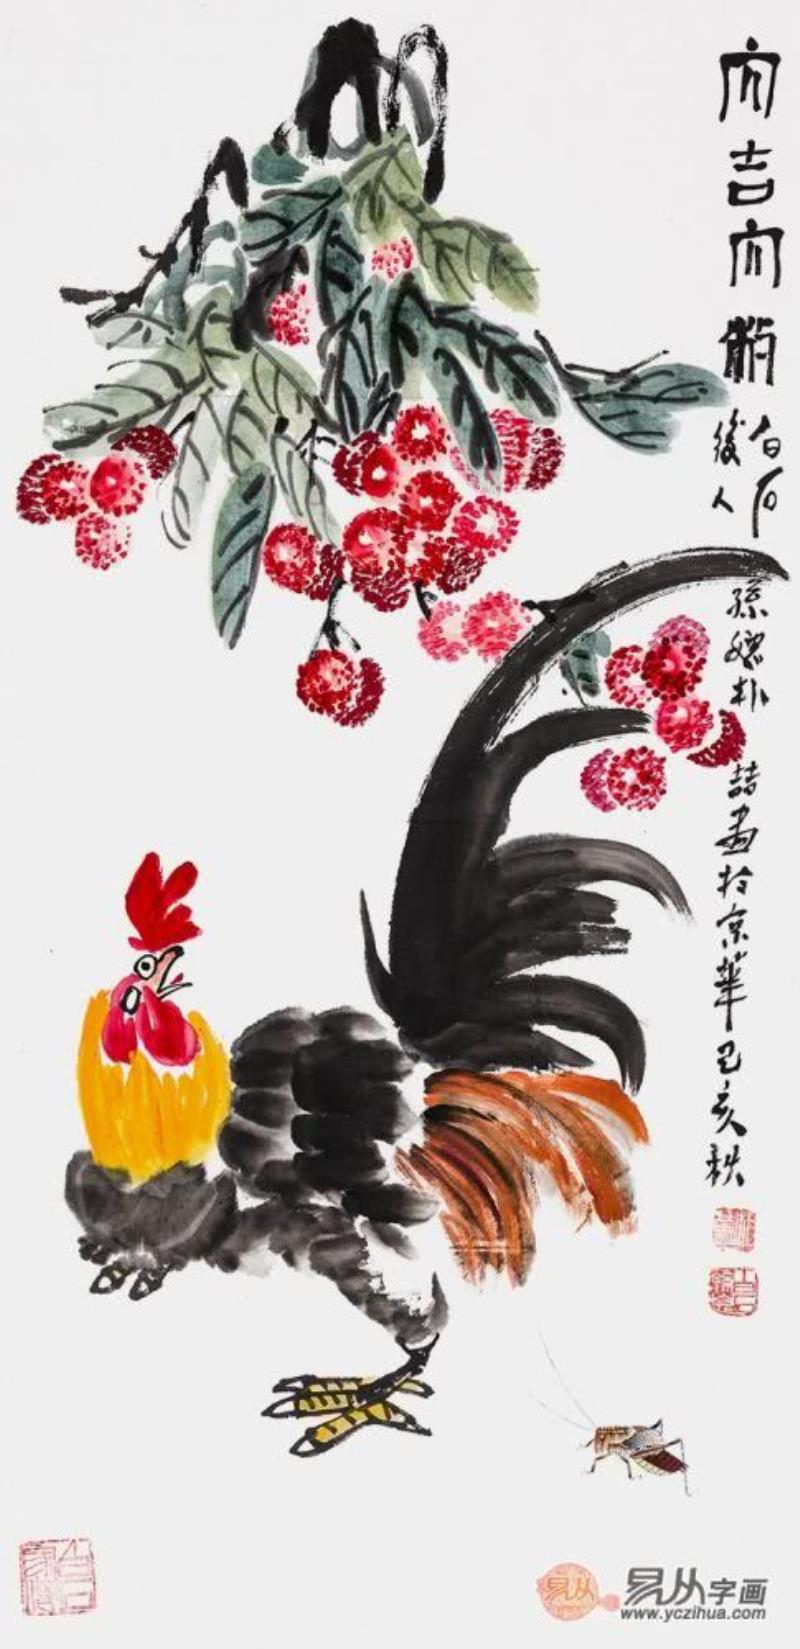 大吉大利
白石
後人
孫媳朴喆畫於京華己亥秋
易从字画
www.yczihua.com